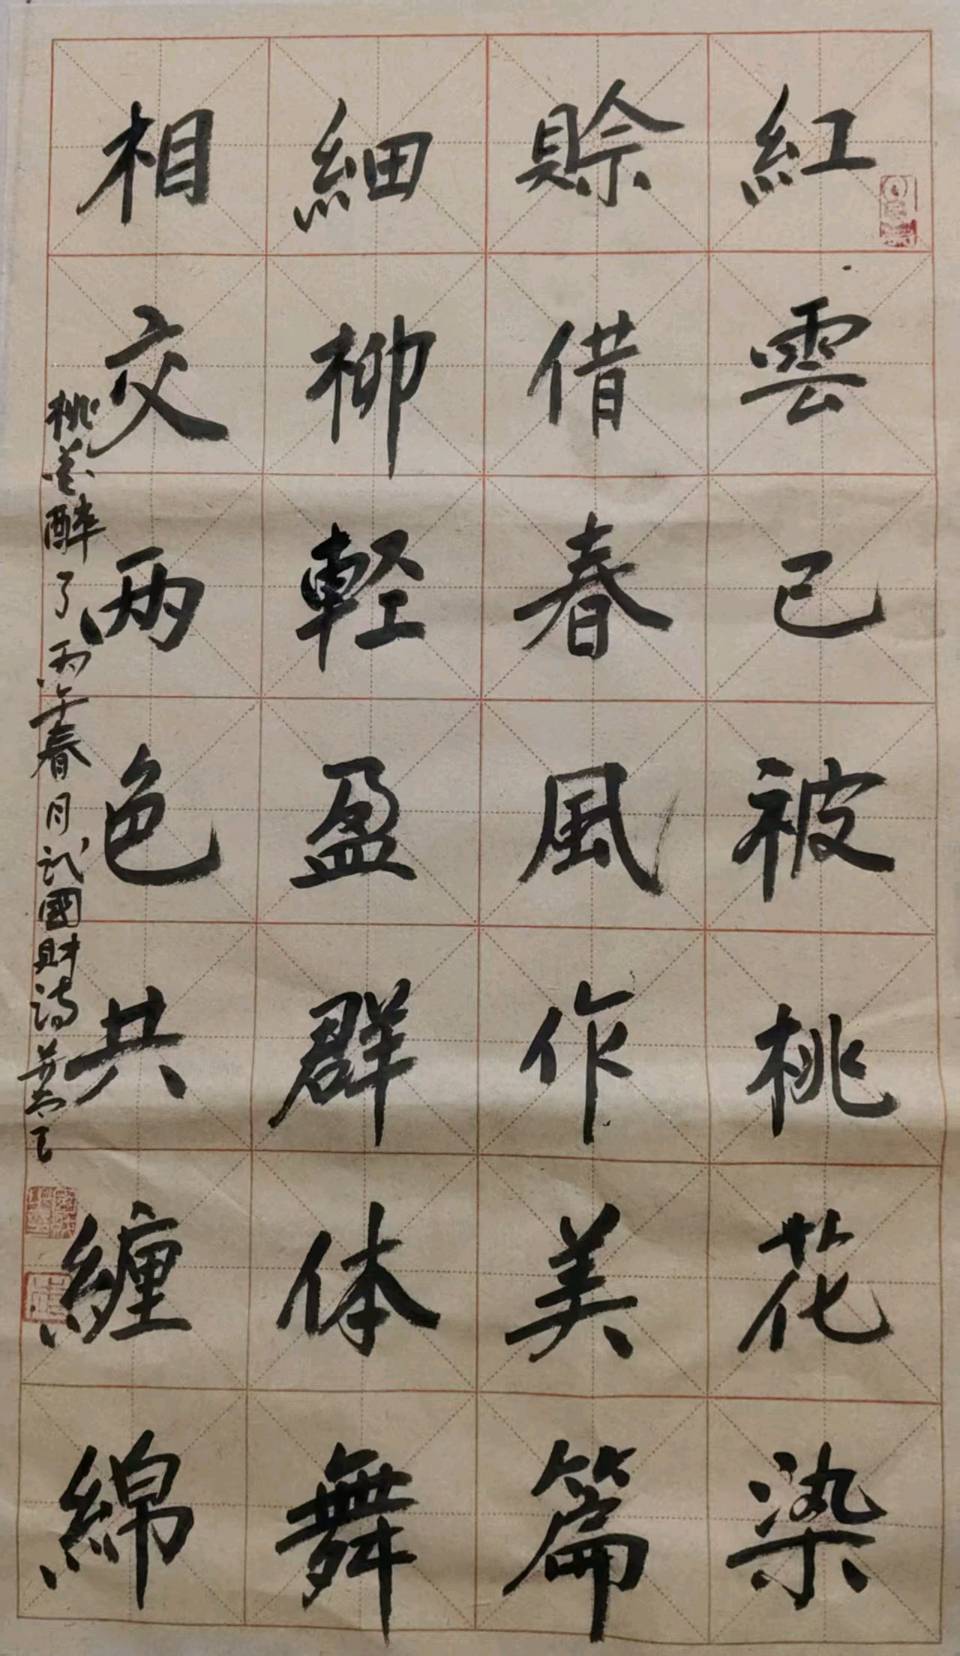 紅雲已被桃花染
賒借春風作美篇
細柳輕盈群体舞
相交兩色共纏綿
桃花醉了丙午春月武國財詩并書